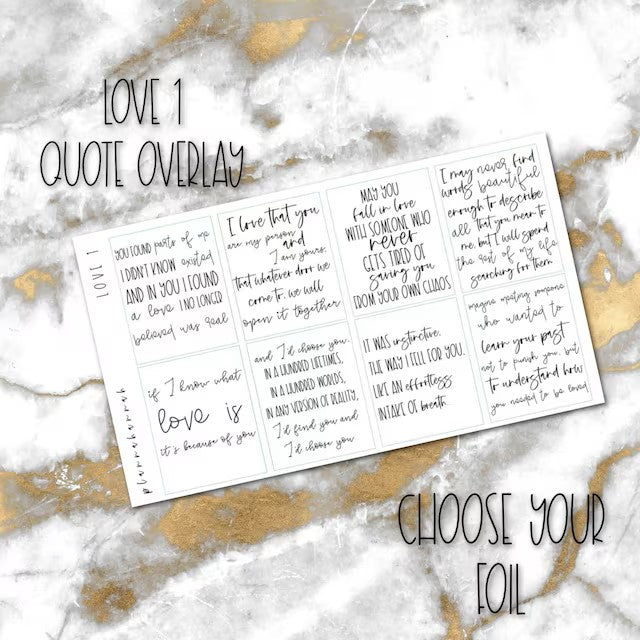 LOVE 1
QUOTE OVERLAY
LOVE 1
plannahannah
YOU FOUND parts of me
I DIDN'T KNOW existed
AND IN YOU I FOUND
a love I NO LONGER
believed was real
I love that you
are my person
and
I am yours,
that whatever door we
come to, we will
open it together
MAY YOU
fall in love
WITH SOMEONE WHO
never
GETS TIRED OF
saving you
FROM YOUR OWN CHAOS
I may never find
words beautiful
enough to describe
all that you mean to
me, but I will spend
the rest of my life
searching for them
if I know what
love is
it's because of you
and I'd choose you
IN A HUNDRED LIFETIMES,
IN A HUNDRED WORLDS,
IN ANY VERSION OF REALITY,
I'd find you and
I'd choose you
IT WAS instinctive,
THE WAY I FELL FOR YOU,
LIKE AN effortless
INTAKE OF breath.
imagine meeting someone
who wanted to
learn your past
not to punish you, but
to understand how
you needed to be loved
CHOOSE YOUR
FOIL